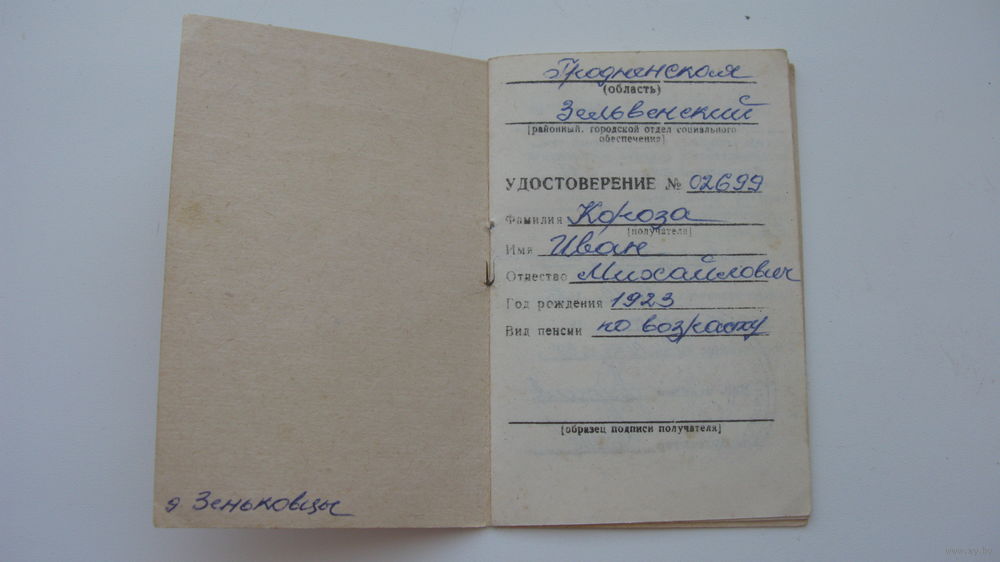 д Зеньковцы
Гродненская
(область)
Зельвенский
[районный, городской отдел социального
обеспечения]
УДОСТОВЕРЕНИЕ № 02699
Фамилия Короза
[получателя]
Имя Иван
Отчество Михайлович
Год рождения 1923
Вид пенсии по возрасту
[образец подписи получателя]
www.ay.by